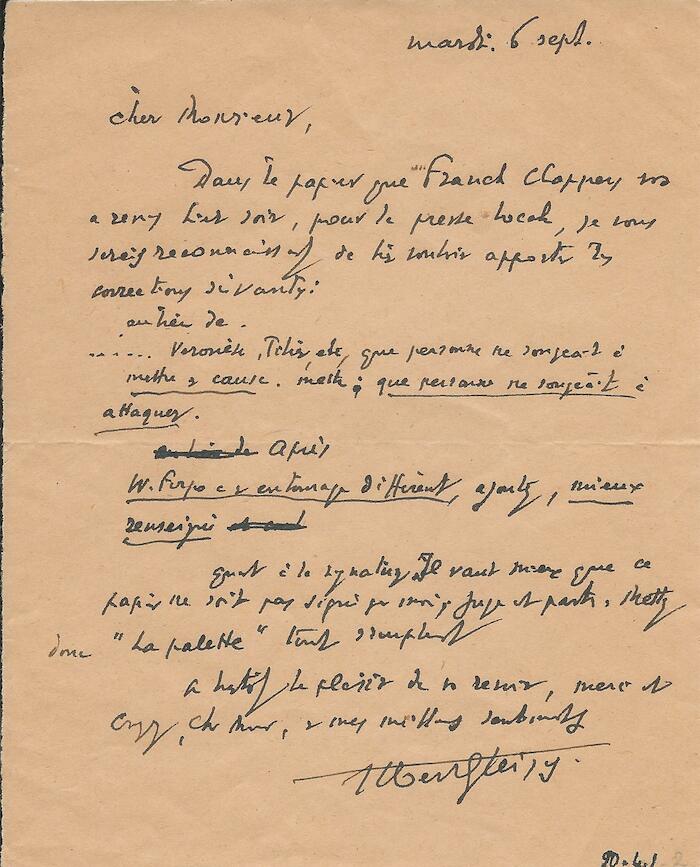 mardi. 6 sept.
cher Monsieur,
Dans le papier que Franck Clappers vous
a remis hier soir, pour la presse locale, je vous
serais reconnaissant de bien vouloir apporter les
corrections suivantes:
au lieu de.
...... Veronèse, Titien, etc, que personne ne songeait à
mettre en cause. mettre: que personne ne songeait à
attaquer.
au lieu de Après
entourage différent, ajoutez, mieux
renseigné
quant à la signature. Il vaut mieux que ce
papier ne soit pas signé par moi, juge et partie. Mettez
donc "La palette" tout simplement
a bientôt le plaisir de vs revoir, merci et
croyez, Cher Monsieur, à mes meilleurs sentiments
Albert Gleizes.